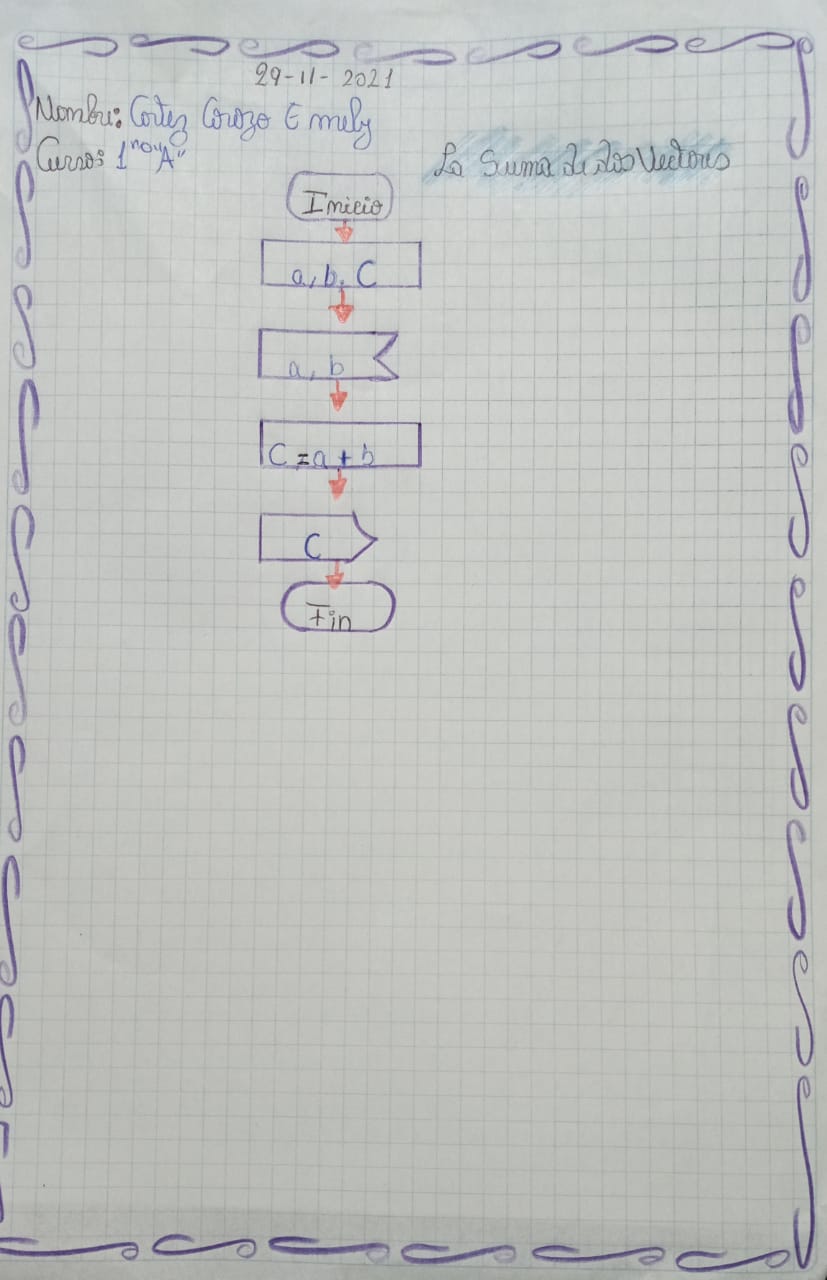 29-11-2021
Nombre: Cortez Corozo Emely
Curso: 1ro "A"
La Suma de dos Vectores
Inicio
a, b, C
a, b
C = a + b
C
Fin